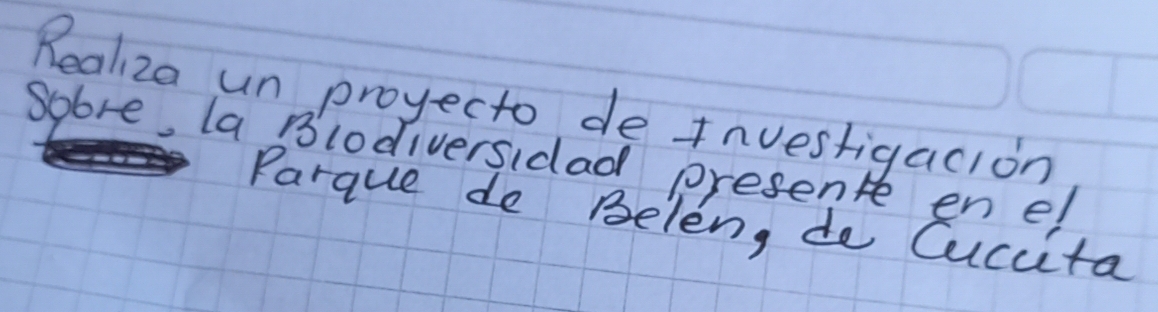 Realiza un proyecto de Investigación,
Sobre, la Biodiversidad presente en el
Parque de Belén, de Cucúta